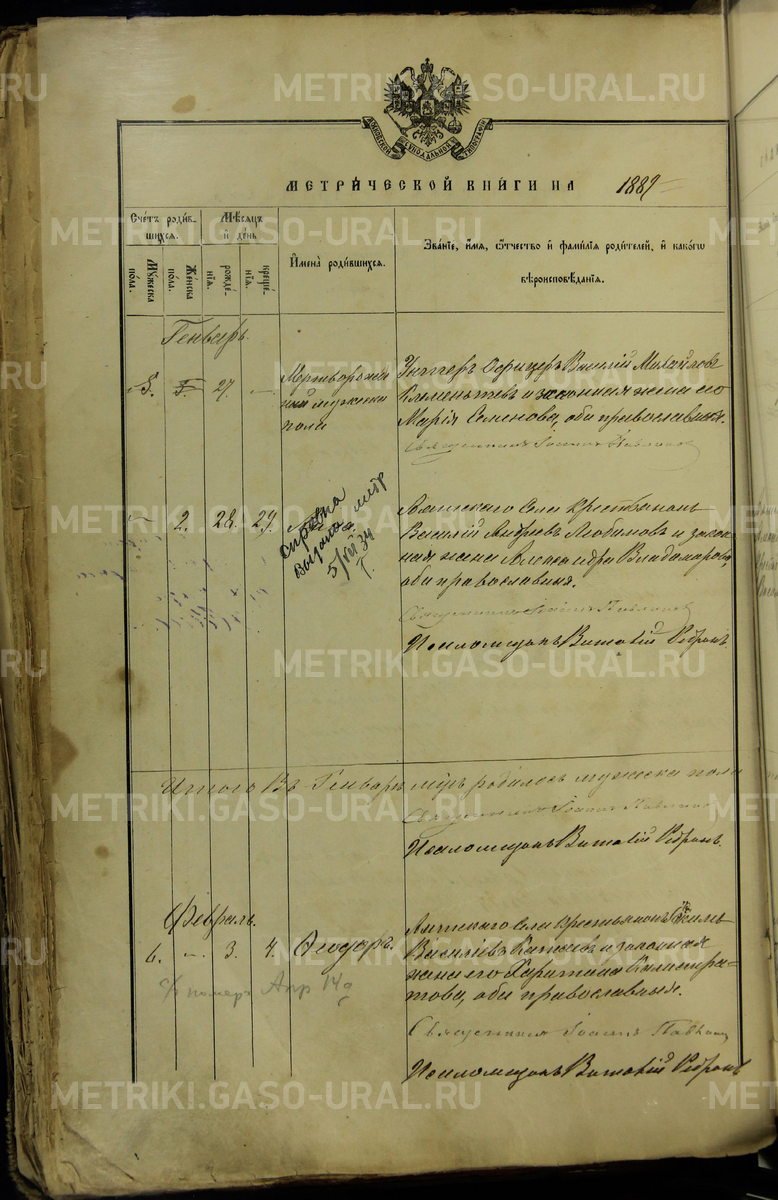 METRIKI.GASO-URAL.RU
МОСКОВСКОЙ СѴНОДАЛЬНОЙ ТИПОГРАФІИ
МЕТРИ́ЧЕСКОЙ КНИ́ГИ НА 1889
Счетъ роди́вшихся.
Мѣсяцъ и день
Имена̀ роди́вшихся.
Зва́нїе, и́мя, о́тчество и фами́лїя роди́телей, и како́гѡ вѣроисповѣ́данїя.
Мꙋжеска по́ла.
Же́нска по́ла.
рожде́нїя.
креще́нїя.
Генварь.
5. 27. Мертворожденный мужеска пола
Унтеръ Офицеръ Василій Михайловъ
Клементьев и законная жена его
Марія Семенова, оба православныя.
Священникъ Іоаннъ Павловъ
2. 28. 29.
Справка выдана
5/VII 34 г
Села Крестьянинъ
Василій Андреевъ Любимовъ и законная
жена Александра
оба православныя.
Священникъ Іоаннъ Павловъ
Псаломщикъ Виталій
Итого Въ Генварѣ мцѣ родилось мужеска пола
Священникъ Іоаннъ Павловъ
Псаломщикъ Виталій
Февраль.
6. – 3. 4. Ѳеодоръ.
Села Крестьянинъ
Васильевъ и законная
жена его Харитина Калистратова,
оба православныя.
номер Апр 14
Священникъ Іоаннъ Павловъ
Псаломщикъ Виталій